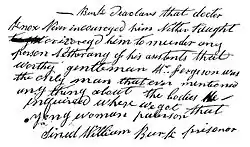 — Burk deaclars that docter
Knox Never incoureged him Nither taught
or incoreged him to murder any
person Nether any of his asistents that
worthy gentleman Mr. Fergeson was
the only man that ever mentioned
any thing about the bodies He
inquired where we got that
yong woman paterson
Sined William Burk prisoner